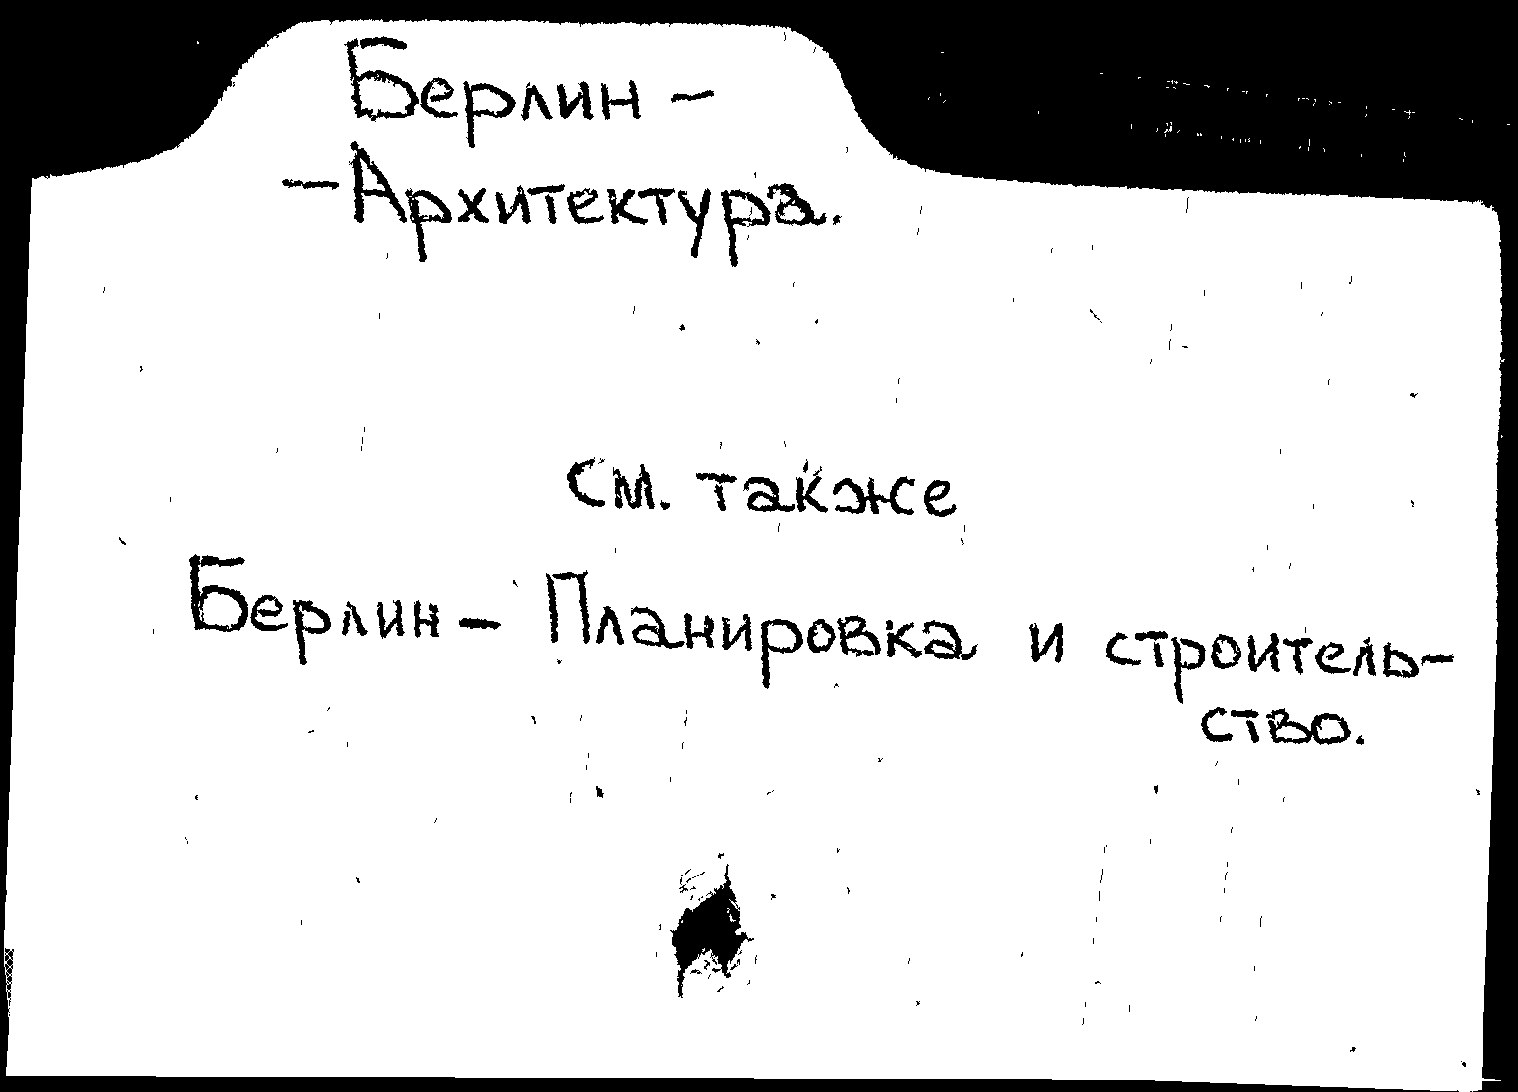 Берлин -
- Архитектура.
см. также
Берлин - Планировка и строитель-
ство.